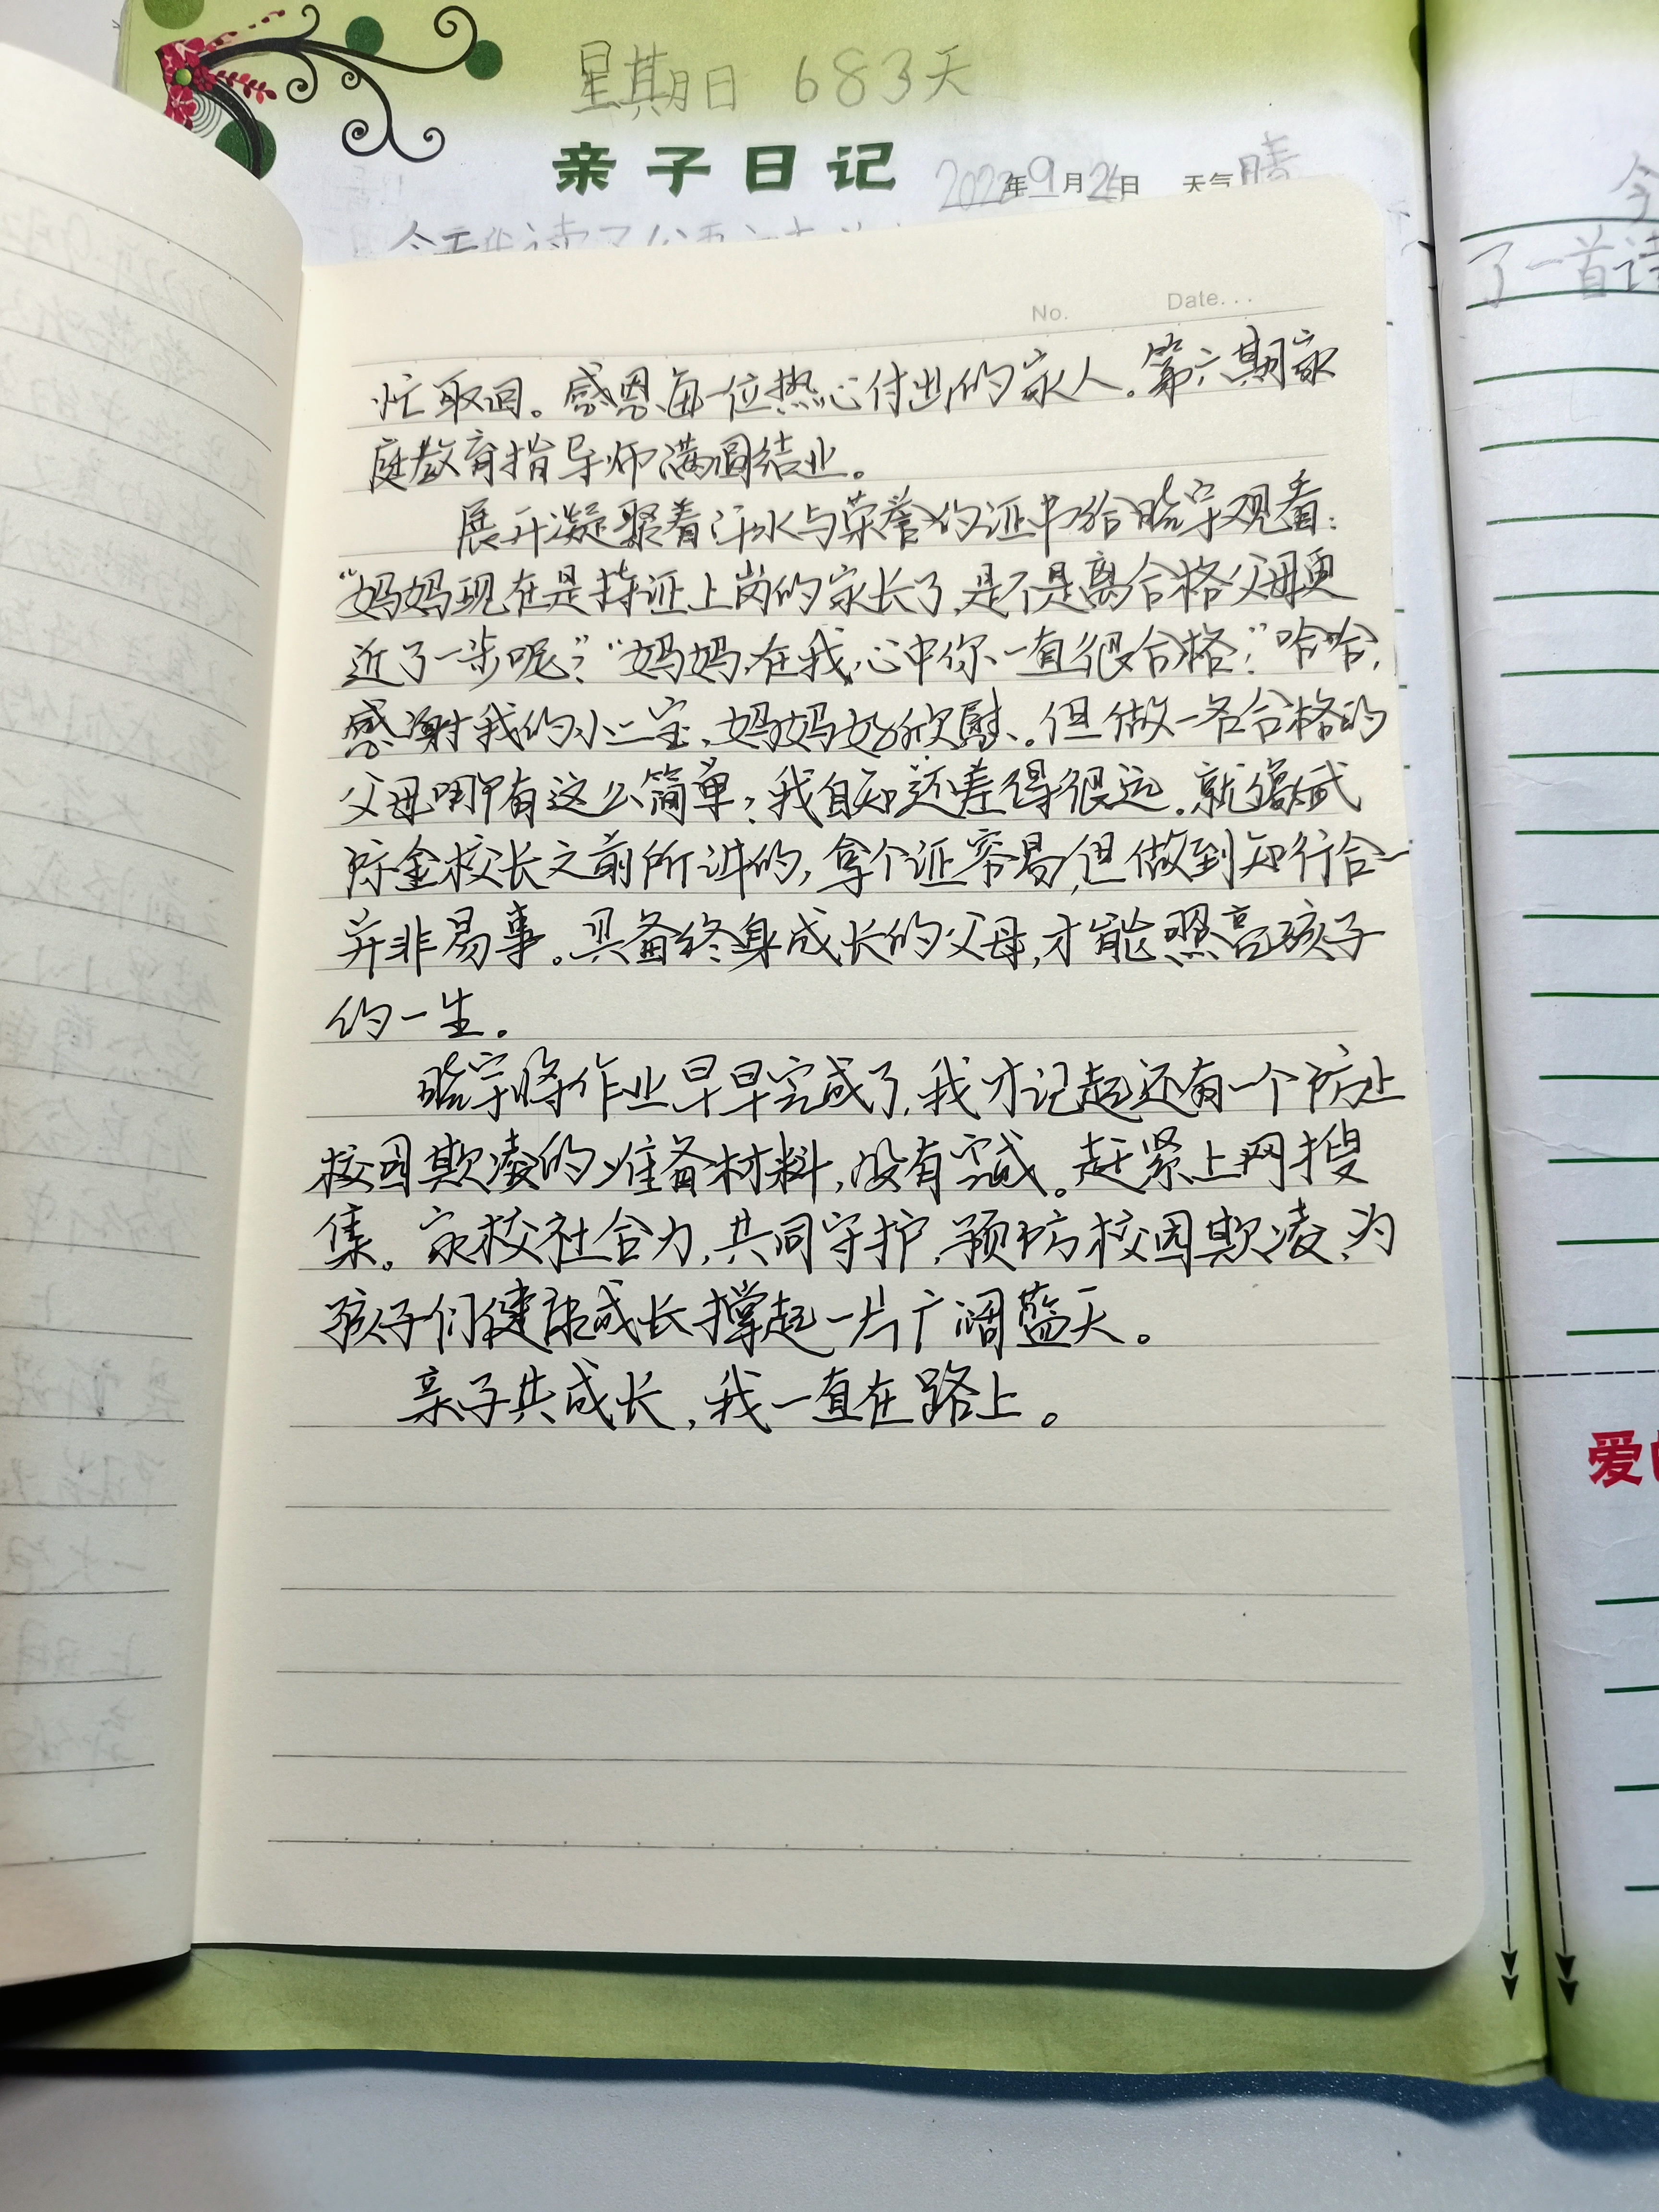 星期日 683天
亲子日记 2022年9月26日 天气晴
No. Date...
忙取回。感恩每一位热心付出的家人。第六期家
庭教育指导师满圆结业。
展开凝聚着汗水与荣誉的证书给晗宇观看：
“妈妈现在是持证上岗的家长了，是不是离合格父母更
近了一步呢？”“妈妈，在我心中你一直很合格！”哈哈，
感谢我的小二宝，妈妈好欣慰。但做一名合格的
父母哪有这么简单，我自知还差得很远。就像
金校长之前所讲的，拿个证容易，但做到知行合一
并非易事。具备终身成长的父母，才能照亮孩子
的一生。
晗宇将作业早早完成了，我才记起还有一个防止
校园欺凌的准备材料，没有完成。赶紧上网搜
集。家校社合力，共同守护，预防校园欺凌，为
孩子们健康成长撑起一片广阔蓝天。
亲子共成长，我一直在路上。
今
了一首诗
爱